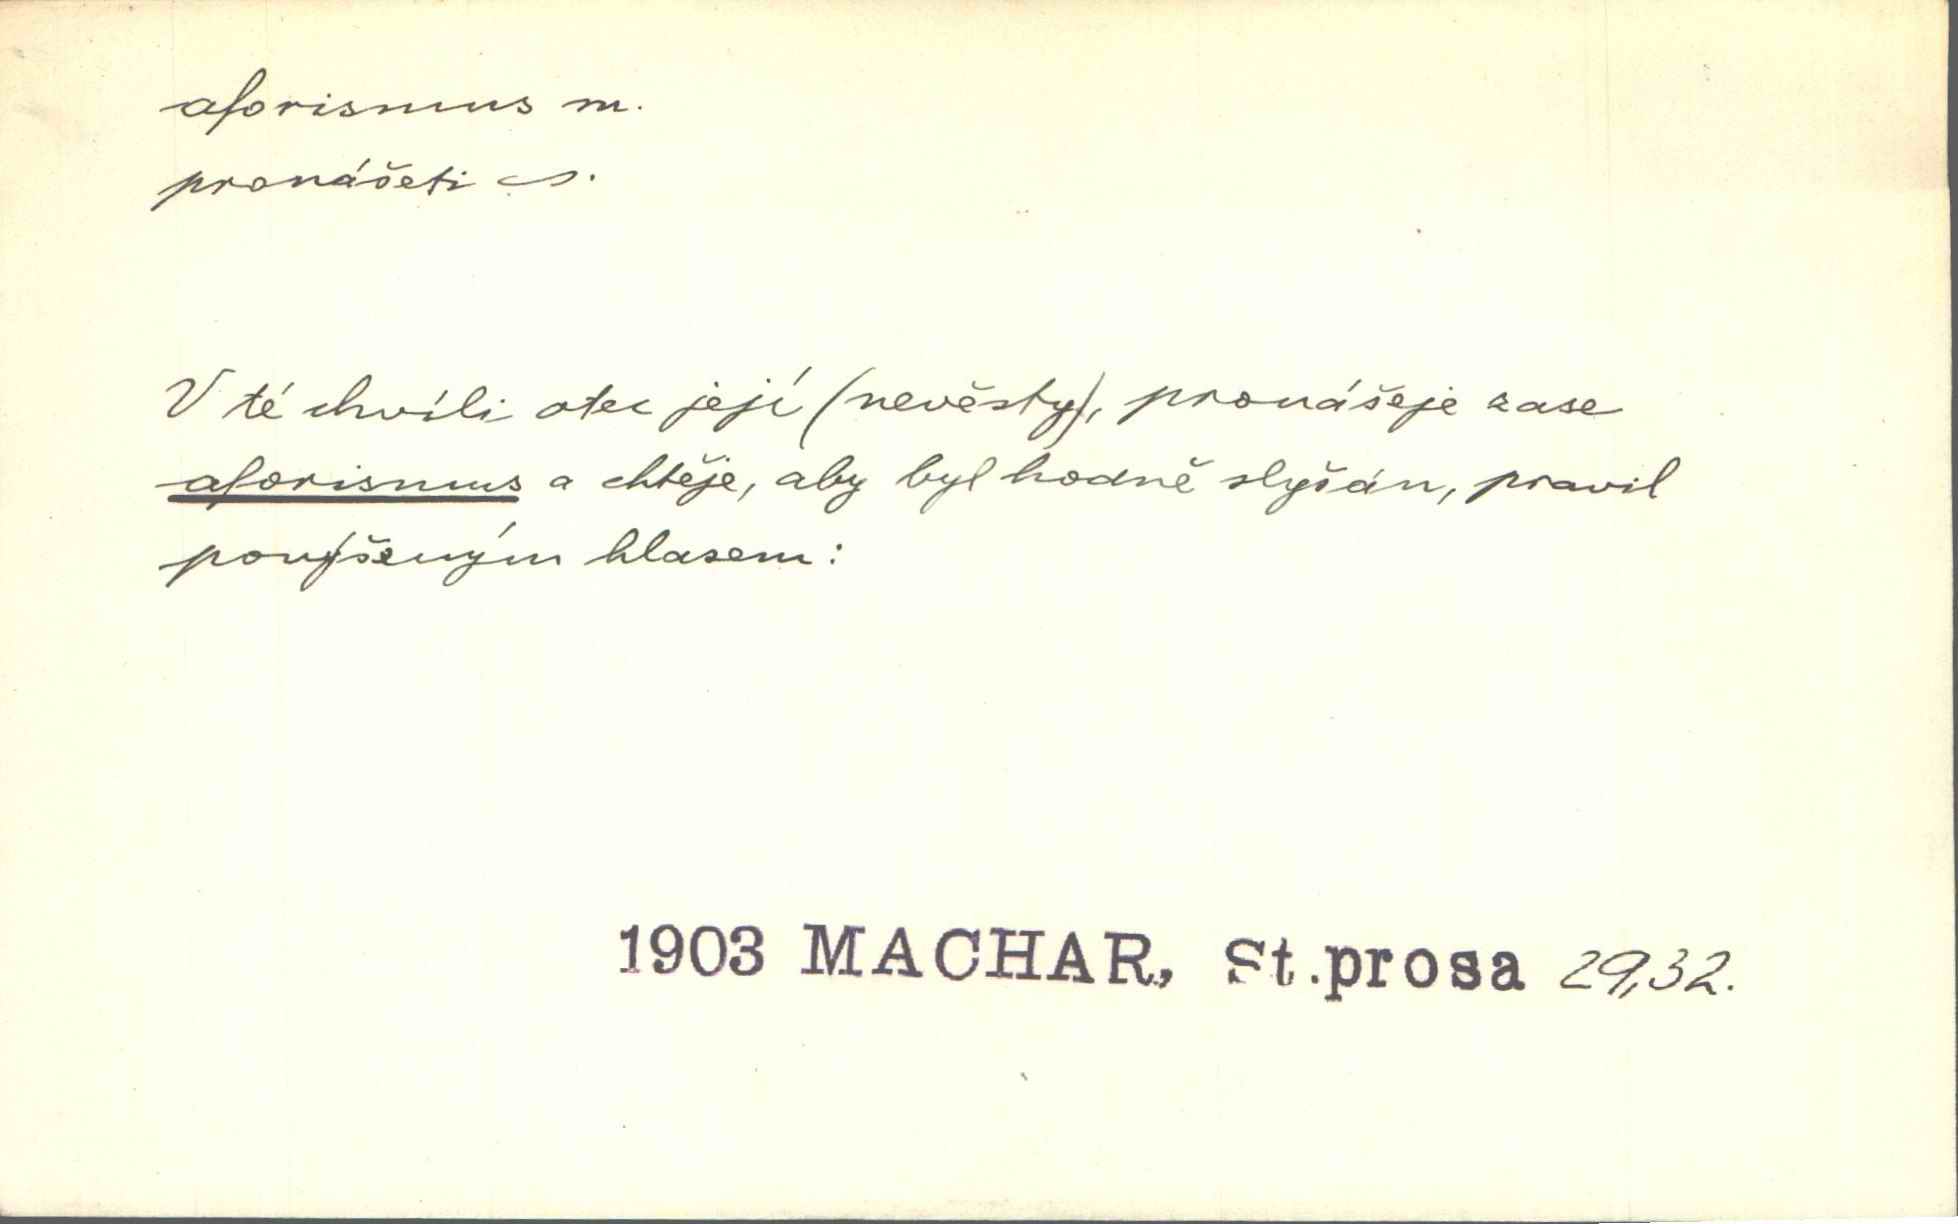 aforismus m.
pronášeti ~.
V té chvíli otec její (nevěsty), pronášeje zase
aforismus a chtěje, aby byl hodně slyšán, pravil
povýšeným hlasem:
1903 MACHAR, St.prosa 29,32.